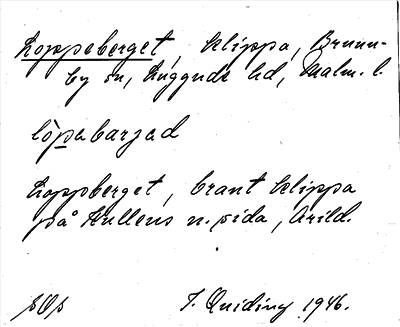 Loppeberget, klippa, Brunn-
by sn, Luggude hd, Malm. l.
lòpabarjad
Loppberget, brant klippa
på Kullens n. sida, Arild.
J. Quiding 1946.